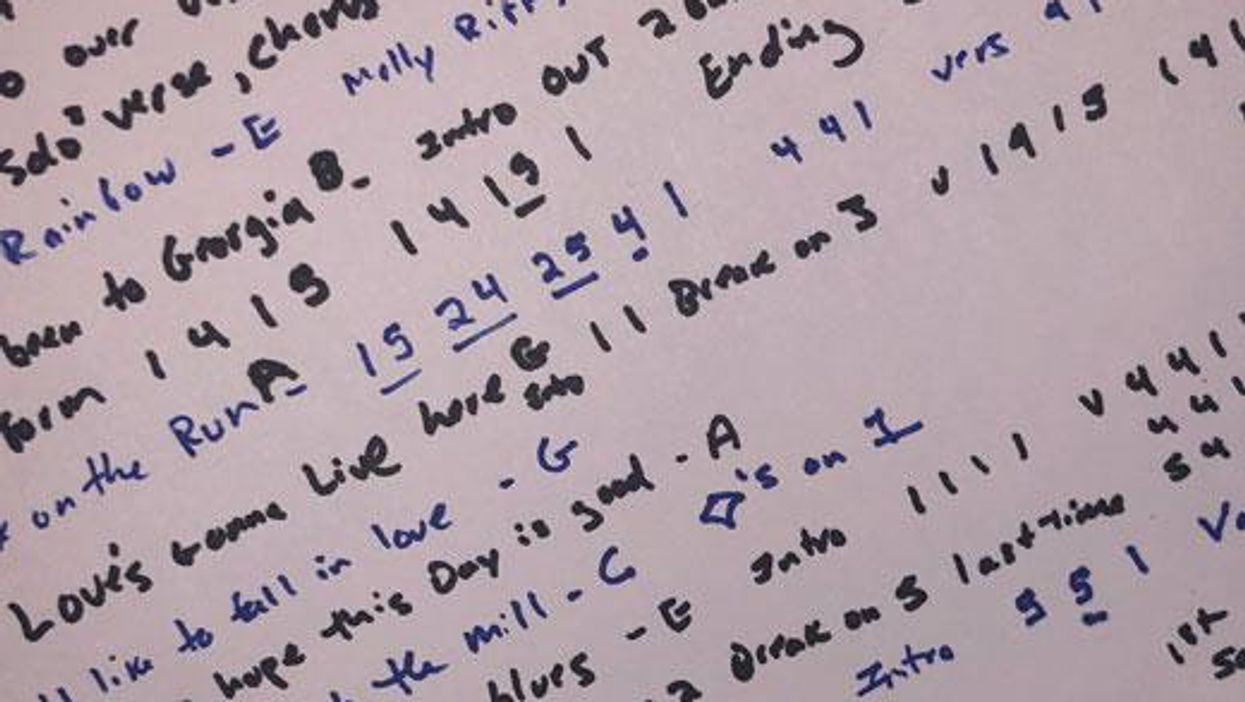 over
Solo" verse, chorus
Rainbow - E Molly Riff
been to Georgia B- Intro OUT 2 Ending
form 1 4 1 5 1 4 1 5 1
on the Run A- 15 24 25 4 1 4 4 1 vers 4 1
Love's Gonna Live here G solo 1 1 Break on 3 v 1 4 1 5 1 4
like to fall in love - G
hope this Day is good - A
the mill - C 's on 1
blues - E Intro 1 1 1 1 v 4 4 1
4 4
2 Break on 5 last time 5 4
Intro 5 5 1
1st